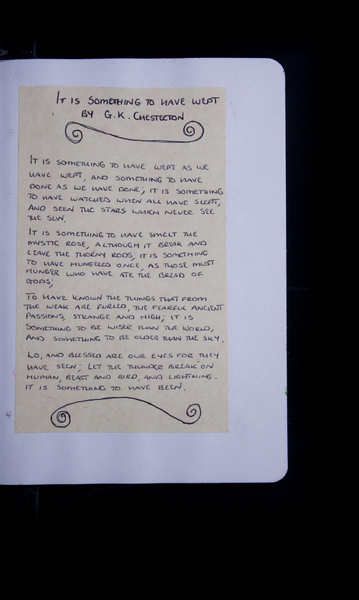 IT IS SOMETHING TO HAVE WEPT
BY G.K. CHESTERTON
IT IS SOMETHING TO HAVE WEPT AS WE
HAVE WEPT, AND SOMETHING TO HAVE
DONE AS WE HAVE DONE; IT IS SOMETHING
TO HAVE WATCHED WHEN ALL HAVE SLEPT,
AND SEEN THE STARS WHICH NEVER SEE
THE SUN.
IT IS SOMETHING TO HAVE SMELT THE
MYSTIC ROSE, ALTHOUGH IT BREAK AND
LEAVE THE THORNY RODS; IT IS SOMETHING
TO HAVE HUNGERED ONCE, AS THOSE MUST
HUNGER WHO HAVE ATE THE BREAD OF
GODS;
TO HAVE KNOWN THE THINGS THAT FROM
THE WEAK ARE FURLED, THE FEARFUL ANCIENT
PASSIONS, STRANGE AND HIGH; IT IS
SOMETHING TO BE WISER THAN THE WORLD,
AND SOMETHING TO BE OLDER THAN THE SKY.
LO, AND BLESSED ARE OUR EYES FOR THEY
HAVE SEEN; LET THE THUNDER BREAK ON
HUMAN, BEAST AND BIRD, AND LIGHTNING.
IT IS SOMETHING TO HAVE BEEN.